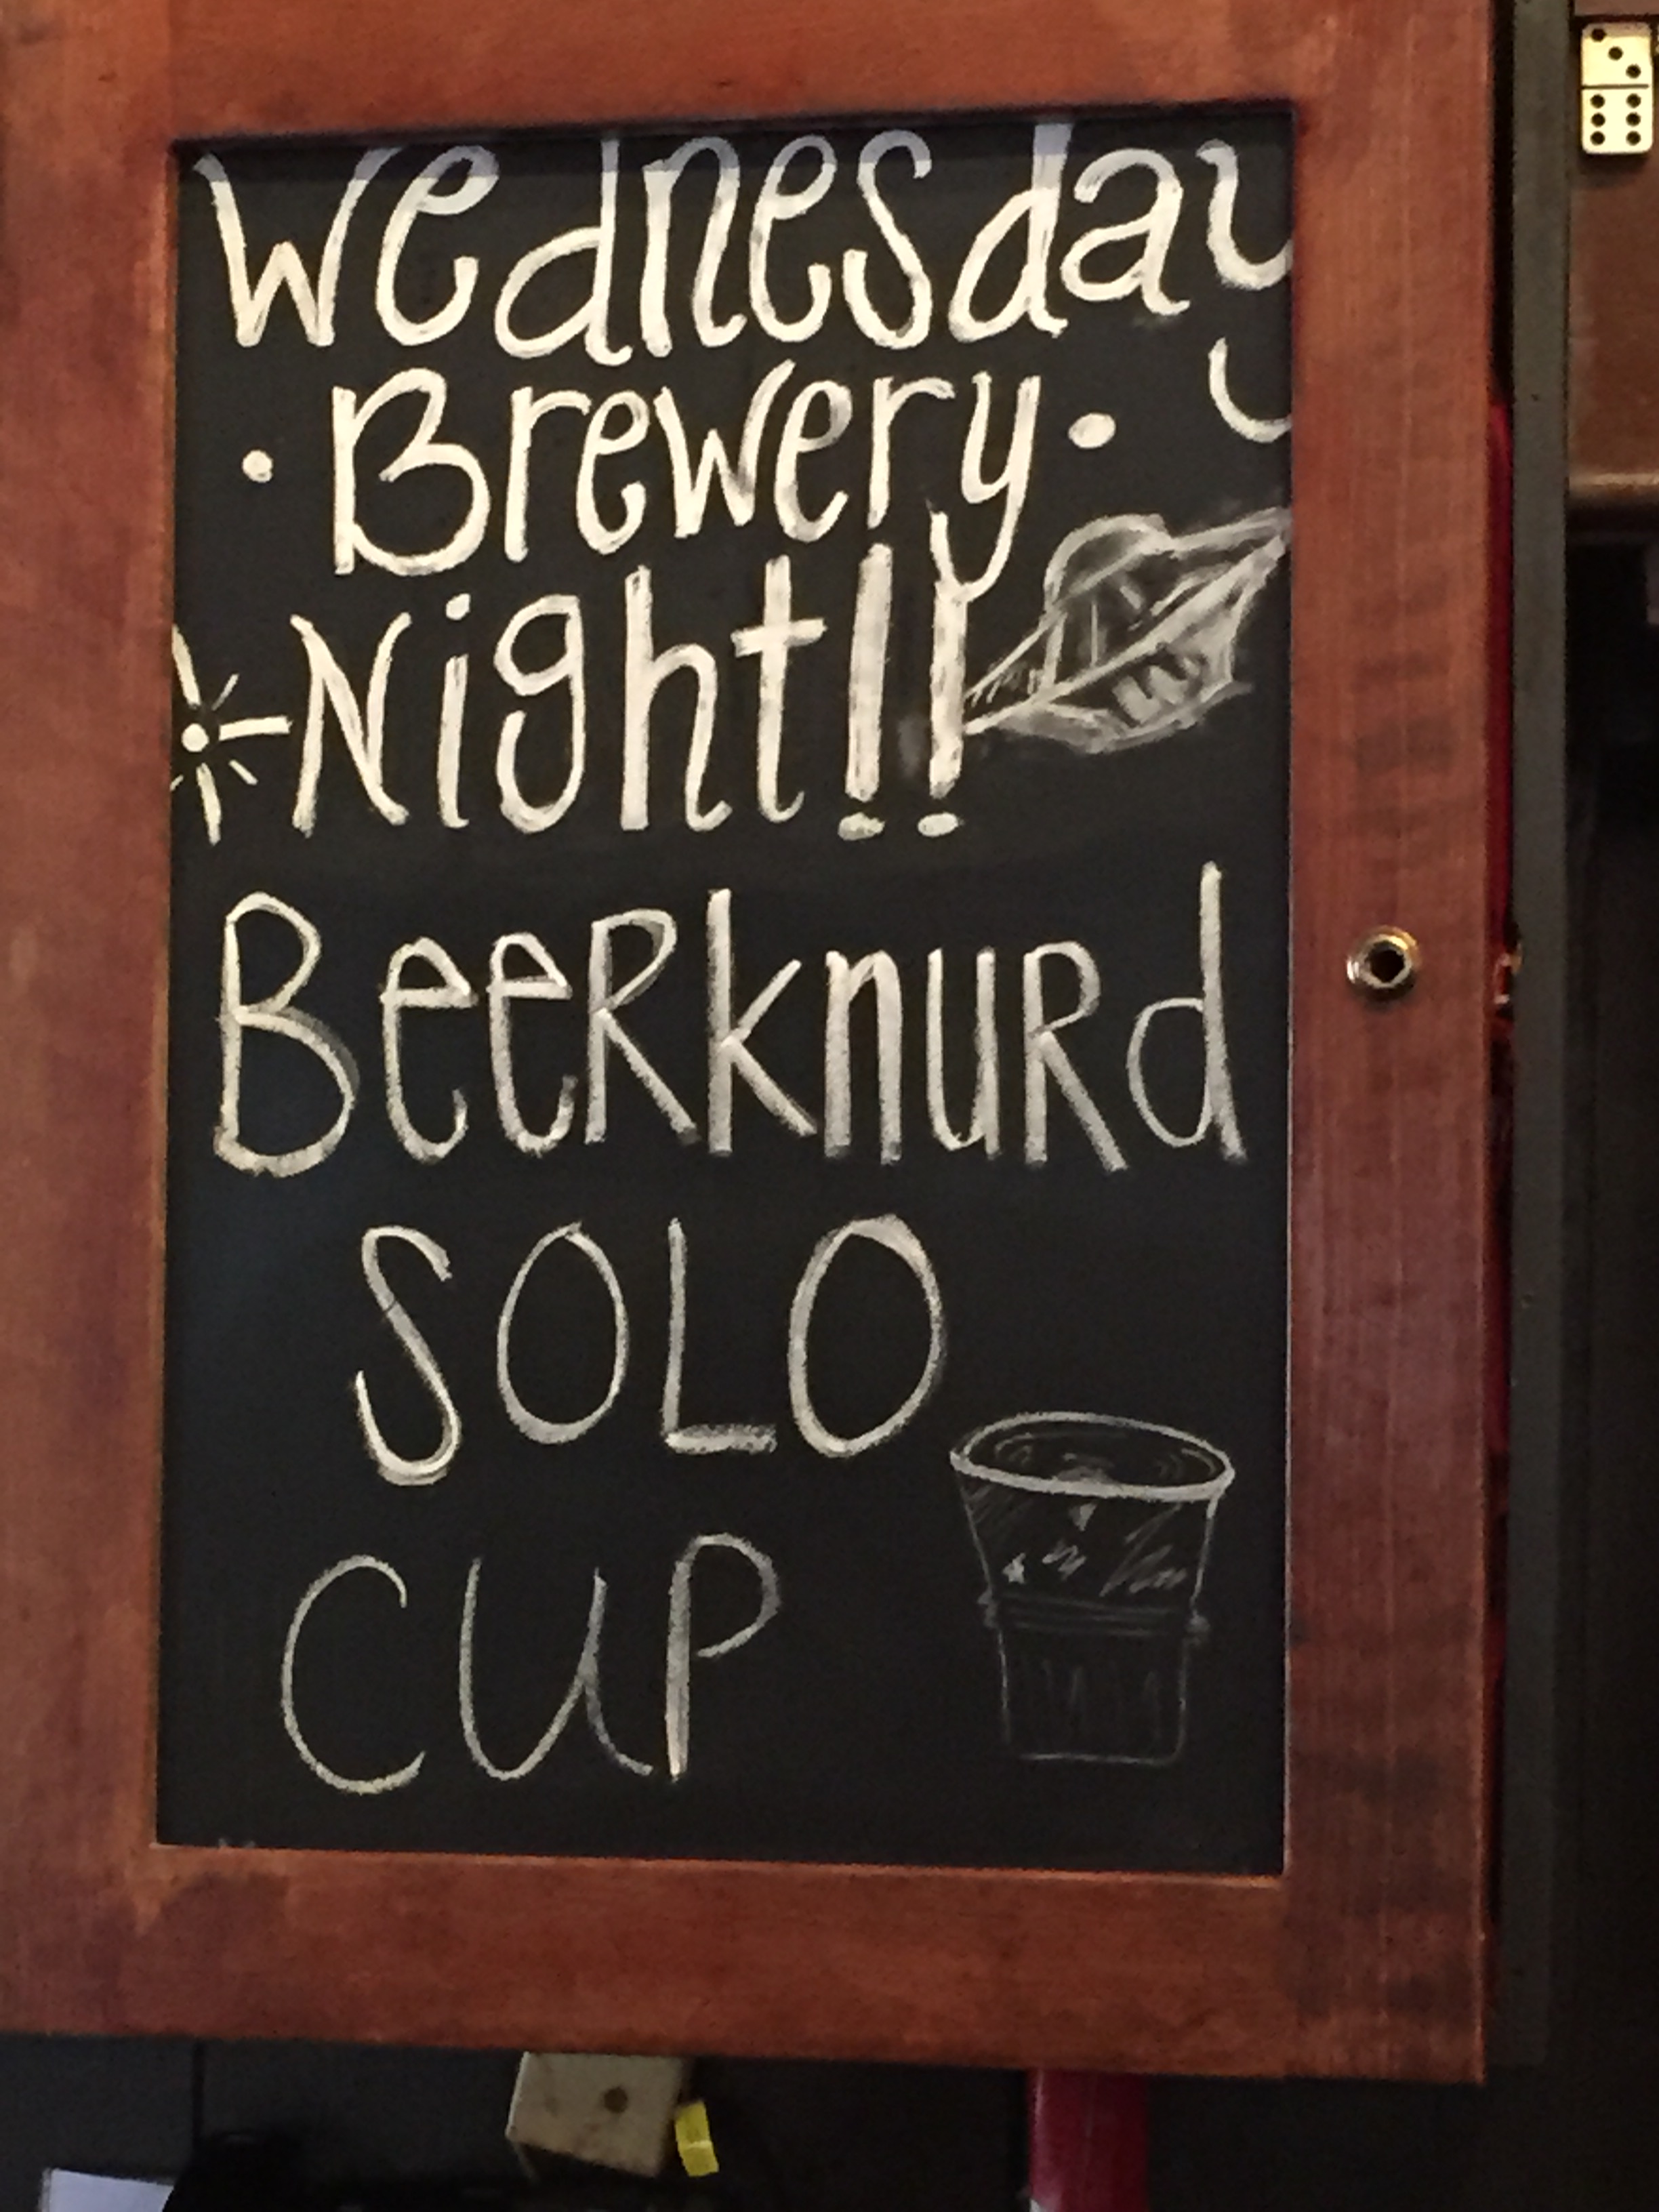 Wednesday
• Brewery •
Night!!
BeeRknuRd
SOLO
CUP